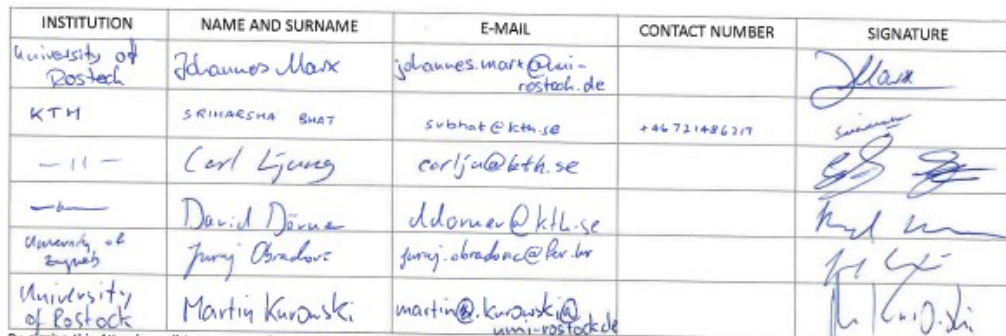 INSTITUTION NAME AND SURNAME E-MAIL CONTACT NUMBER SIGNATURE
University of Rostock Johannes Marx johannes.marx@uni-rostock.de Marx
KTH SRIHARSHA BHAT svbhat@kth.se +46721486217
—11— Carl Ljung carlju@kth.se
—11— David Dörner ddorner@kth.se
University of Zagreb Juraj Obradović juraj.obradovic@fer.hr
University of Rostock Martin Kurowski martin@.kurowski@uni-rostock.de